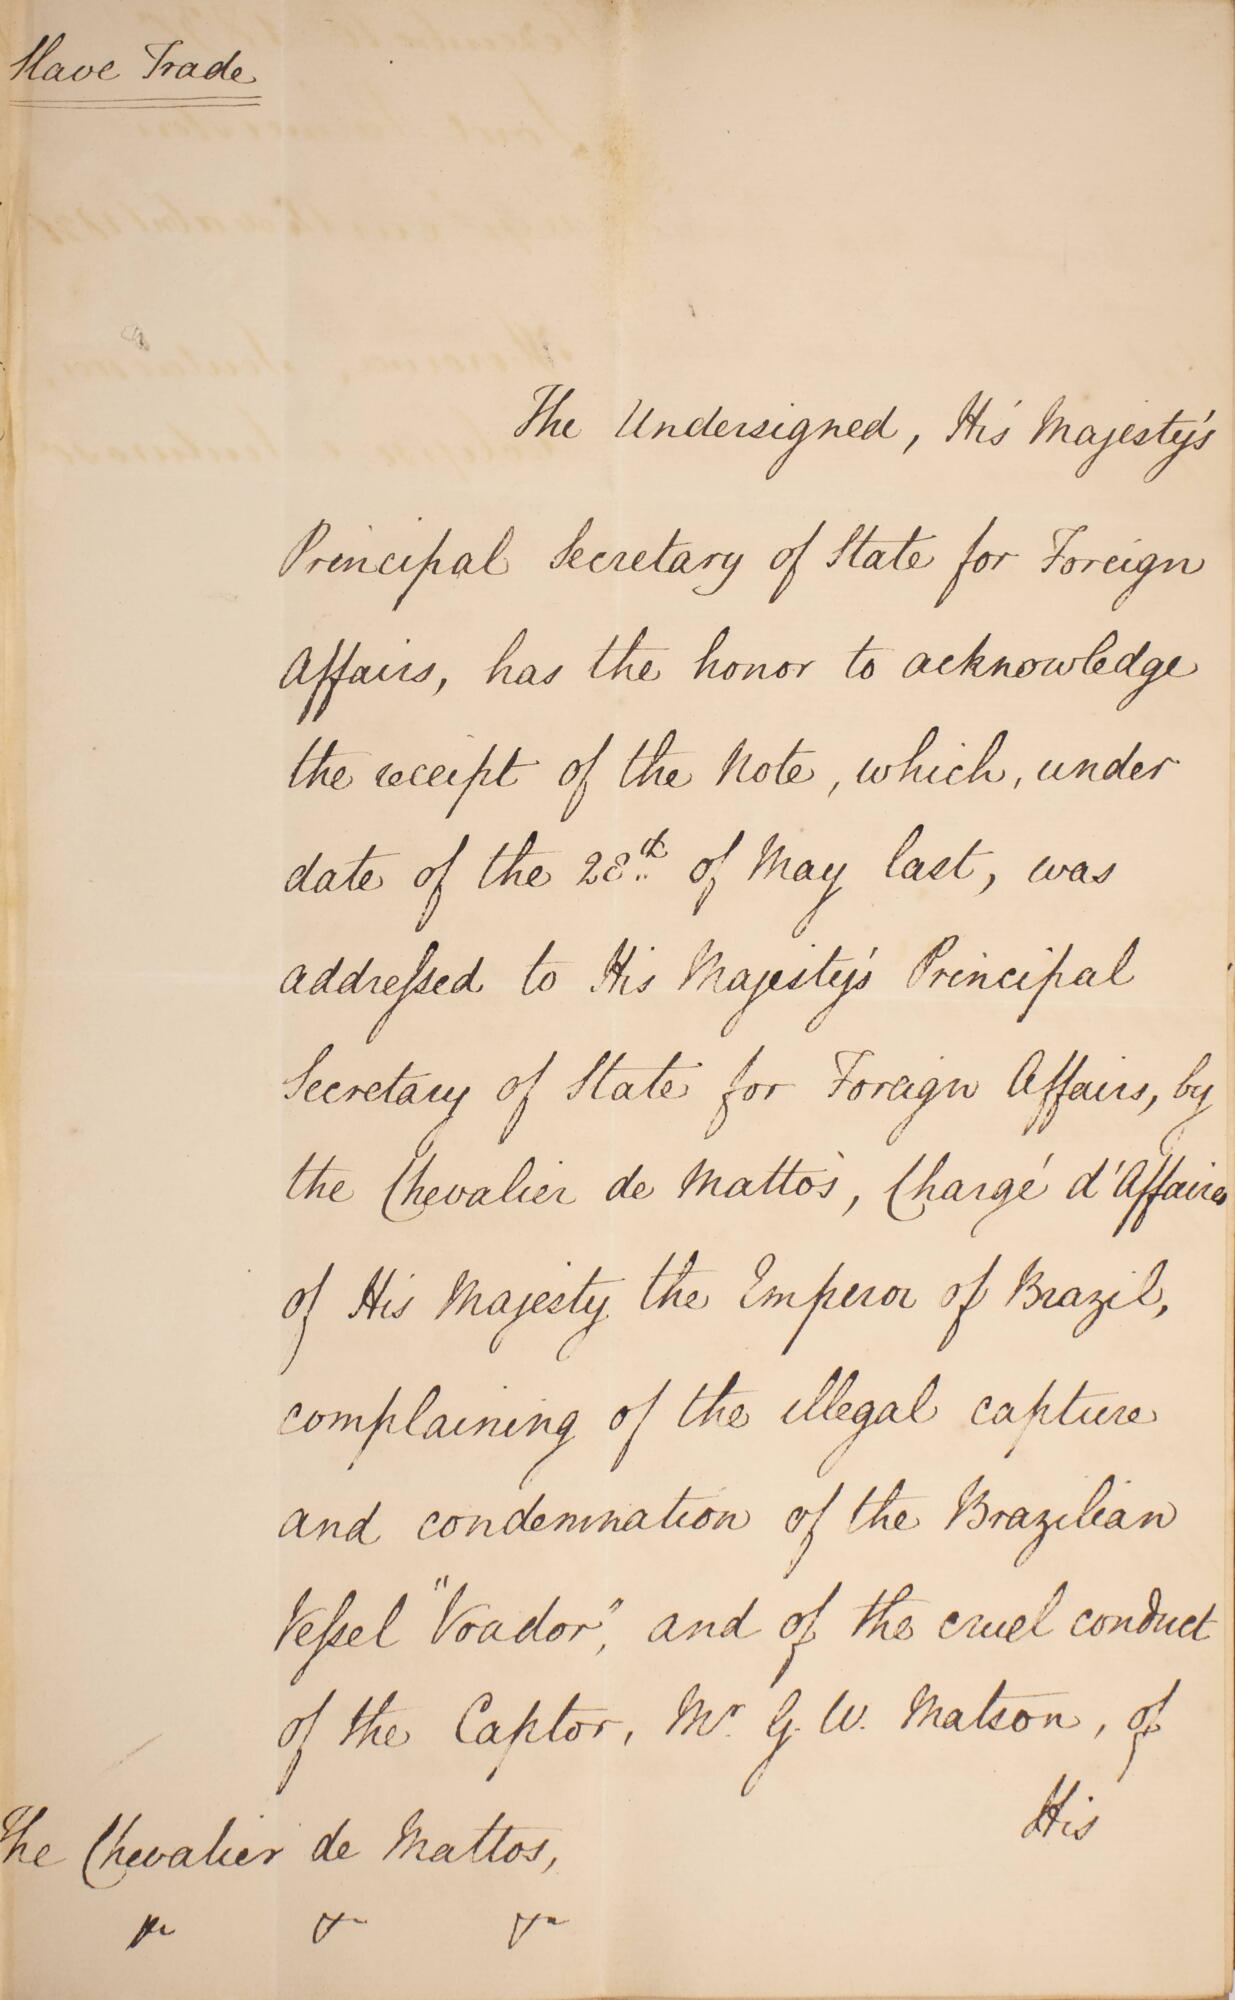 Slave Trade
The Undersigned, His Majesty's
Principal Secretary of State for Foreign
Affairs, has the honor to acknowledge
the receipt of the Note, which, under
date of the 28th of May last, was
addressed to His Majesty's Principal
Secretary of State for Foreign Affairs, by
the Chevalier de Mattos, Chargé d'Affaires
of His Majesty the Emperor of Brazil,
complaining of the illegal capture
and condemnation of the Brazilian
Vessel "Voador", and of the cruel conduct
of the Captor, Mr. G. W. Matson, of
His
The Chevalier de Mattos,
&c &c &c